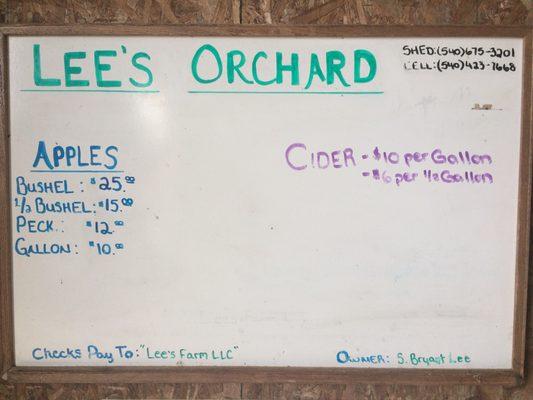 LEE'S ORCHARD
SHED:(540)675-3201
CELL:(540)423-7668
APPLES
BUSHEL: $25.00
1/2 BUSHEL: $15.00
PECK: $12.00
GALLON: $10.00
CIDER - $10 per Gallon
- $6 per 1/2 Gallon
Checks Pay To: "Lee's Farm LLC"
OWNER: S. Bryant Lee